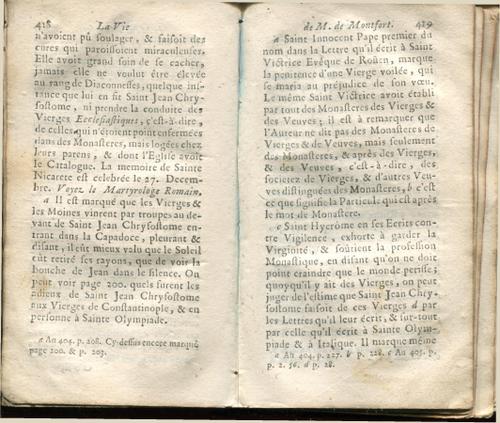 418 La Vie
n'avoient pû soulager, & faisoit des
cures qui paroissoient miraculeuses.
Elle avoit grand soin de se cacher,
jamais elle ne voulut être élevée
au rang de Diaconnesse, quelque ins-
tance que lui en fit Saint Jean Chry-
sostome, ni prendre la conduite des
Vierges Ecclesiastiques, c'est-à-dire,
de celles qui n'étoient point enfermées
dans des Monasteres, mais logées chez
leurs parens, & dont l'Eglise avoit
le Catalogue. La memoire de Sainte
Nicarete est celebrée le 27. Decem-
bre. Voyez le Martyrologe Romain.
a Il est marqué que les Vierges &
les Moines vinrent par troupes au de-
vant de Saint Jean Chrysostome en-
trant dans la Capadoce, pleurant &
disant, il eût mieux valu que le Soleil
eût retiré ses rayons, que de voir la
bouche de Jean dans le silence. On
peut voir page 200. quels furent les
adieux de Saint Jean Chrysostome
aux Vierges de Constantinople, & en
personne à Sainte Olympiade.
a An 404. p. 208. Cy-dessus encore marqué
page 200. & p. 203.
de M. de Montfort. 419
a Saint Innocent Pape premier du
nom dans la Lettre qu'il écrit à Saint
Victrice Evêque de Roüen, marque
la penitence d'une Vierge voilée, qui
se maria au préjudice de son vœu.
Le même Saint Victrice avoit établi
par tout des Monasteres des Vierges &
des Veuves; il est à remarquer que
l'Auteur ne dit pas des Monasteres de
Vierges & de Veuves, mais seulement
des Monasteres, & après des Vierges,
& des Veuves, c'est-à-dire, des
societez de Vierges, & d'autres Veu-
ves distinguées des Monasteres, b c'est
ce que signifie la Particule qui est après
le mot de Monastere.
c Saint Hyerôme en ses Ecrits con-
tre Vigilence, exhorte à garder la
Virginité, & soûtient la profession
Monastique, en disant qu'on ne doit
point craindre que le monde perisse;
quoyqu'il y ait des Vierges, on peut
juger de l'estime que Saint Jean Chry-
sostome faisoit de ces Vierges d par
les Lettres qu'il leur écrit, & sur-tout
par celle qu'il écrit à Sainte Olym-
piade & à Italique. Il marque même
a An 404. p. 227. b p. 228. c An 405. p.
p. 2. 56. d p. 28.